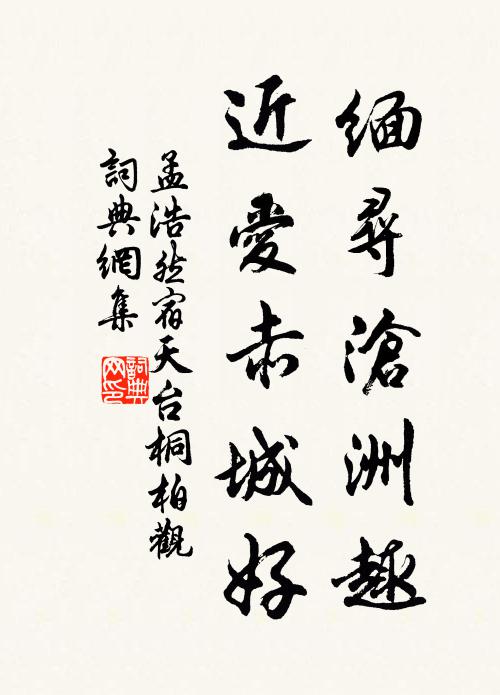 緬尋滄洲趣
近愛赤城好
孟浩然宿天台桐柏觀
詞典網集
詞典
网印